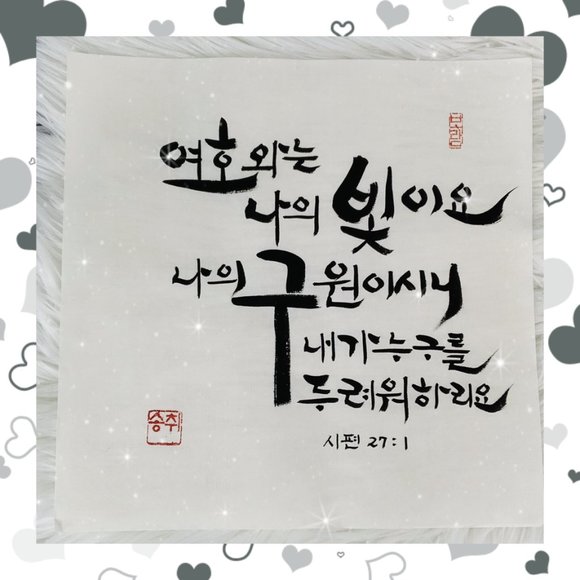 여호와는
나의 빛이요
나의 구원이시니
내가 누구를
두려워하리요
시편 27:1
송취